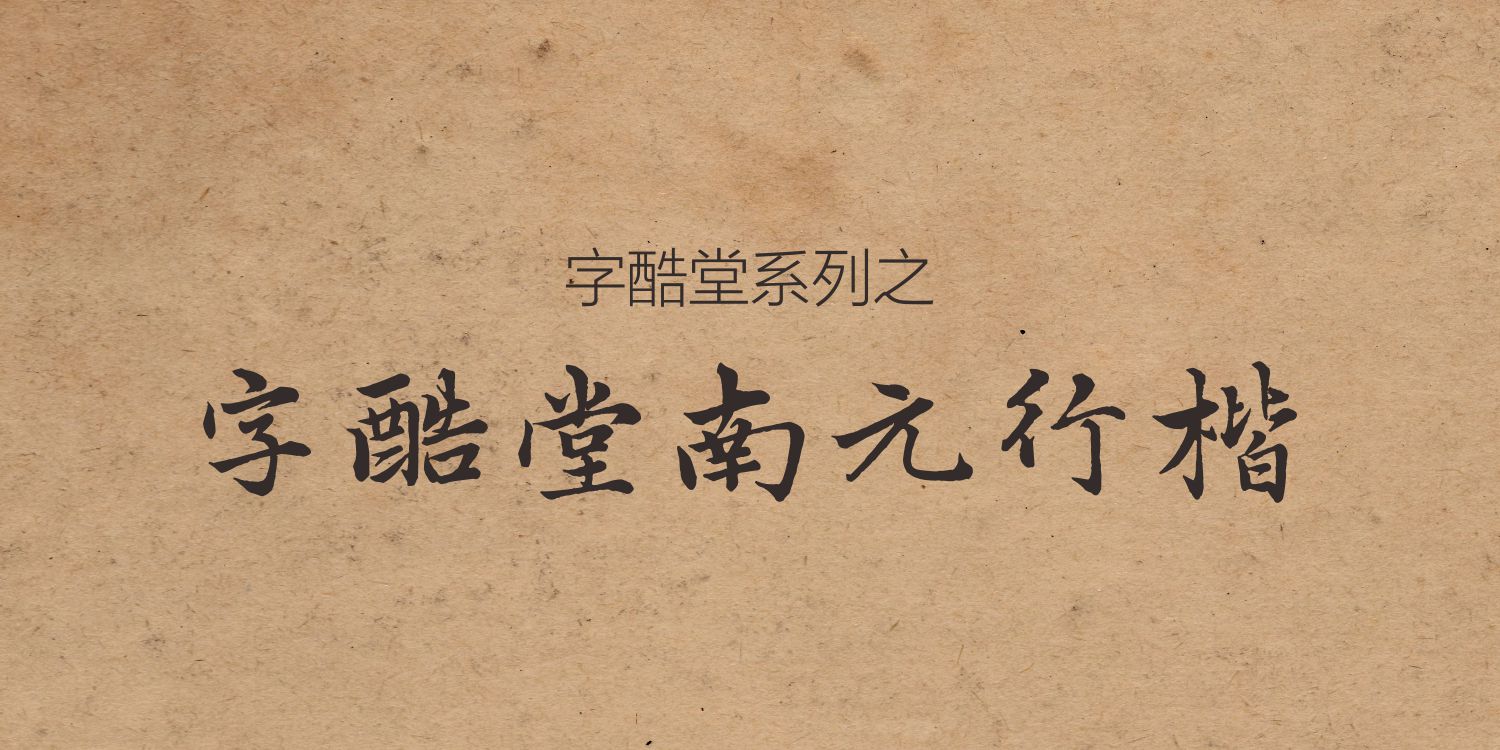 字酷堂系列之
字酷堂南元行楷